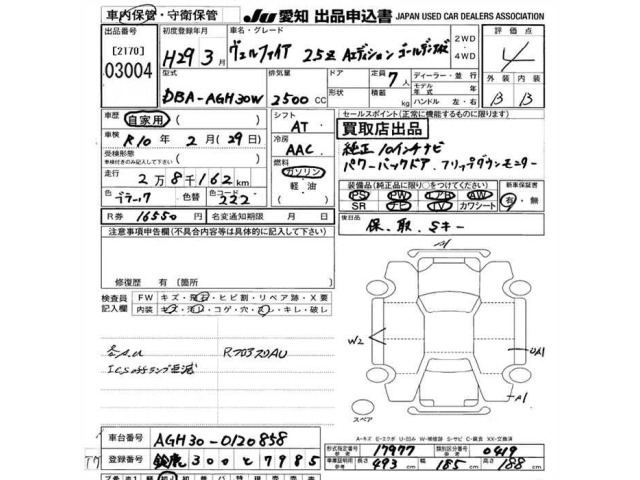 車内保管・守衛保管
JU 愛知 出品申込書 JAPAN USED CAR DEALERS ASSOCIATION
出品番号
[2170]
03004
初度登録年月
H29年3月
車名・グレード
ヴェルファイア 2.5Z Aエディション ゴールデン
2WD
・
4WD
評価点
4
型式
DBA-AGH30W
排気量
2500 cc
ドア
形状
定員 7人
積載 kg
ディーラー・並行
モデル年式 年
ハンドル 左・右
外装 内装
B B
車歴 自家用 ( )
車検 R10年2月(29日)
受検形態
車検付きのみ記入して下さい ( )
走行 2万8千162 km
色 ブラック 色替 色コード 222
R券 16550円 名変通知期限 月 日
シフト
AT
冷房
AAC
燃料
ガソリン
軽・油
( )
セールスポイント(正常に機能するものに限ります)
買取店出品
純正10インチナビ
パワーバックドア、フリップダウンモニター
装備品(純正品に限り○をつけてください)
PS PW エアB AW
SR ナビ TV カワシート
新車保証書
有・無
後日品
保、取、Sキー
注意事項申告欄(不具合内容等は具体的に記入して下さい)
修復歴 有(箇所 )
検査員
記入欄
FW キズ・飛石・ヒビ割・リペア跡・X要
内装 キズ・汚れ・コゲ・穴・スレ・キレ・破レ
ICS offランプ点滅
A1
W2
UA1
A1
スペア
A-キズ E-エクボ U-凹み W-補修跡 S-サビ C-腐食 XX-交換済
車台番号 AGH30-0120858
登録番号 鈴鹿300と7985
形式指定番号 17977 類別区分番号 0419
車庫証明用参考 長さ 493 cm 幅 185 cm 高さ 188 cm